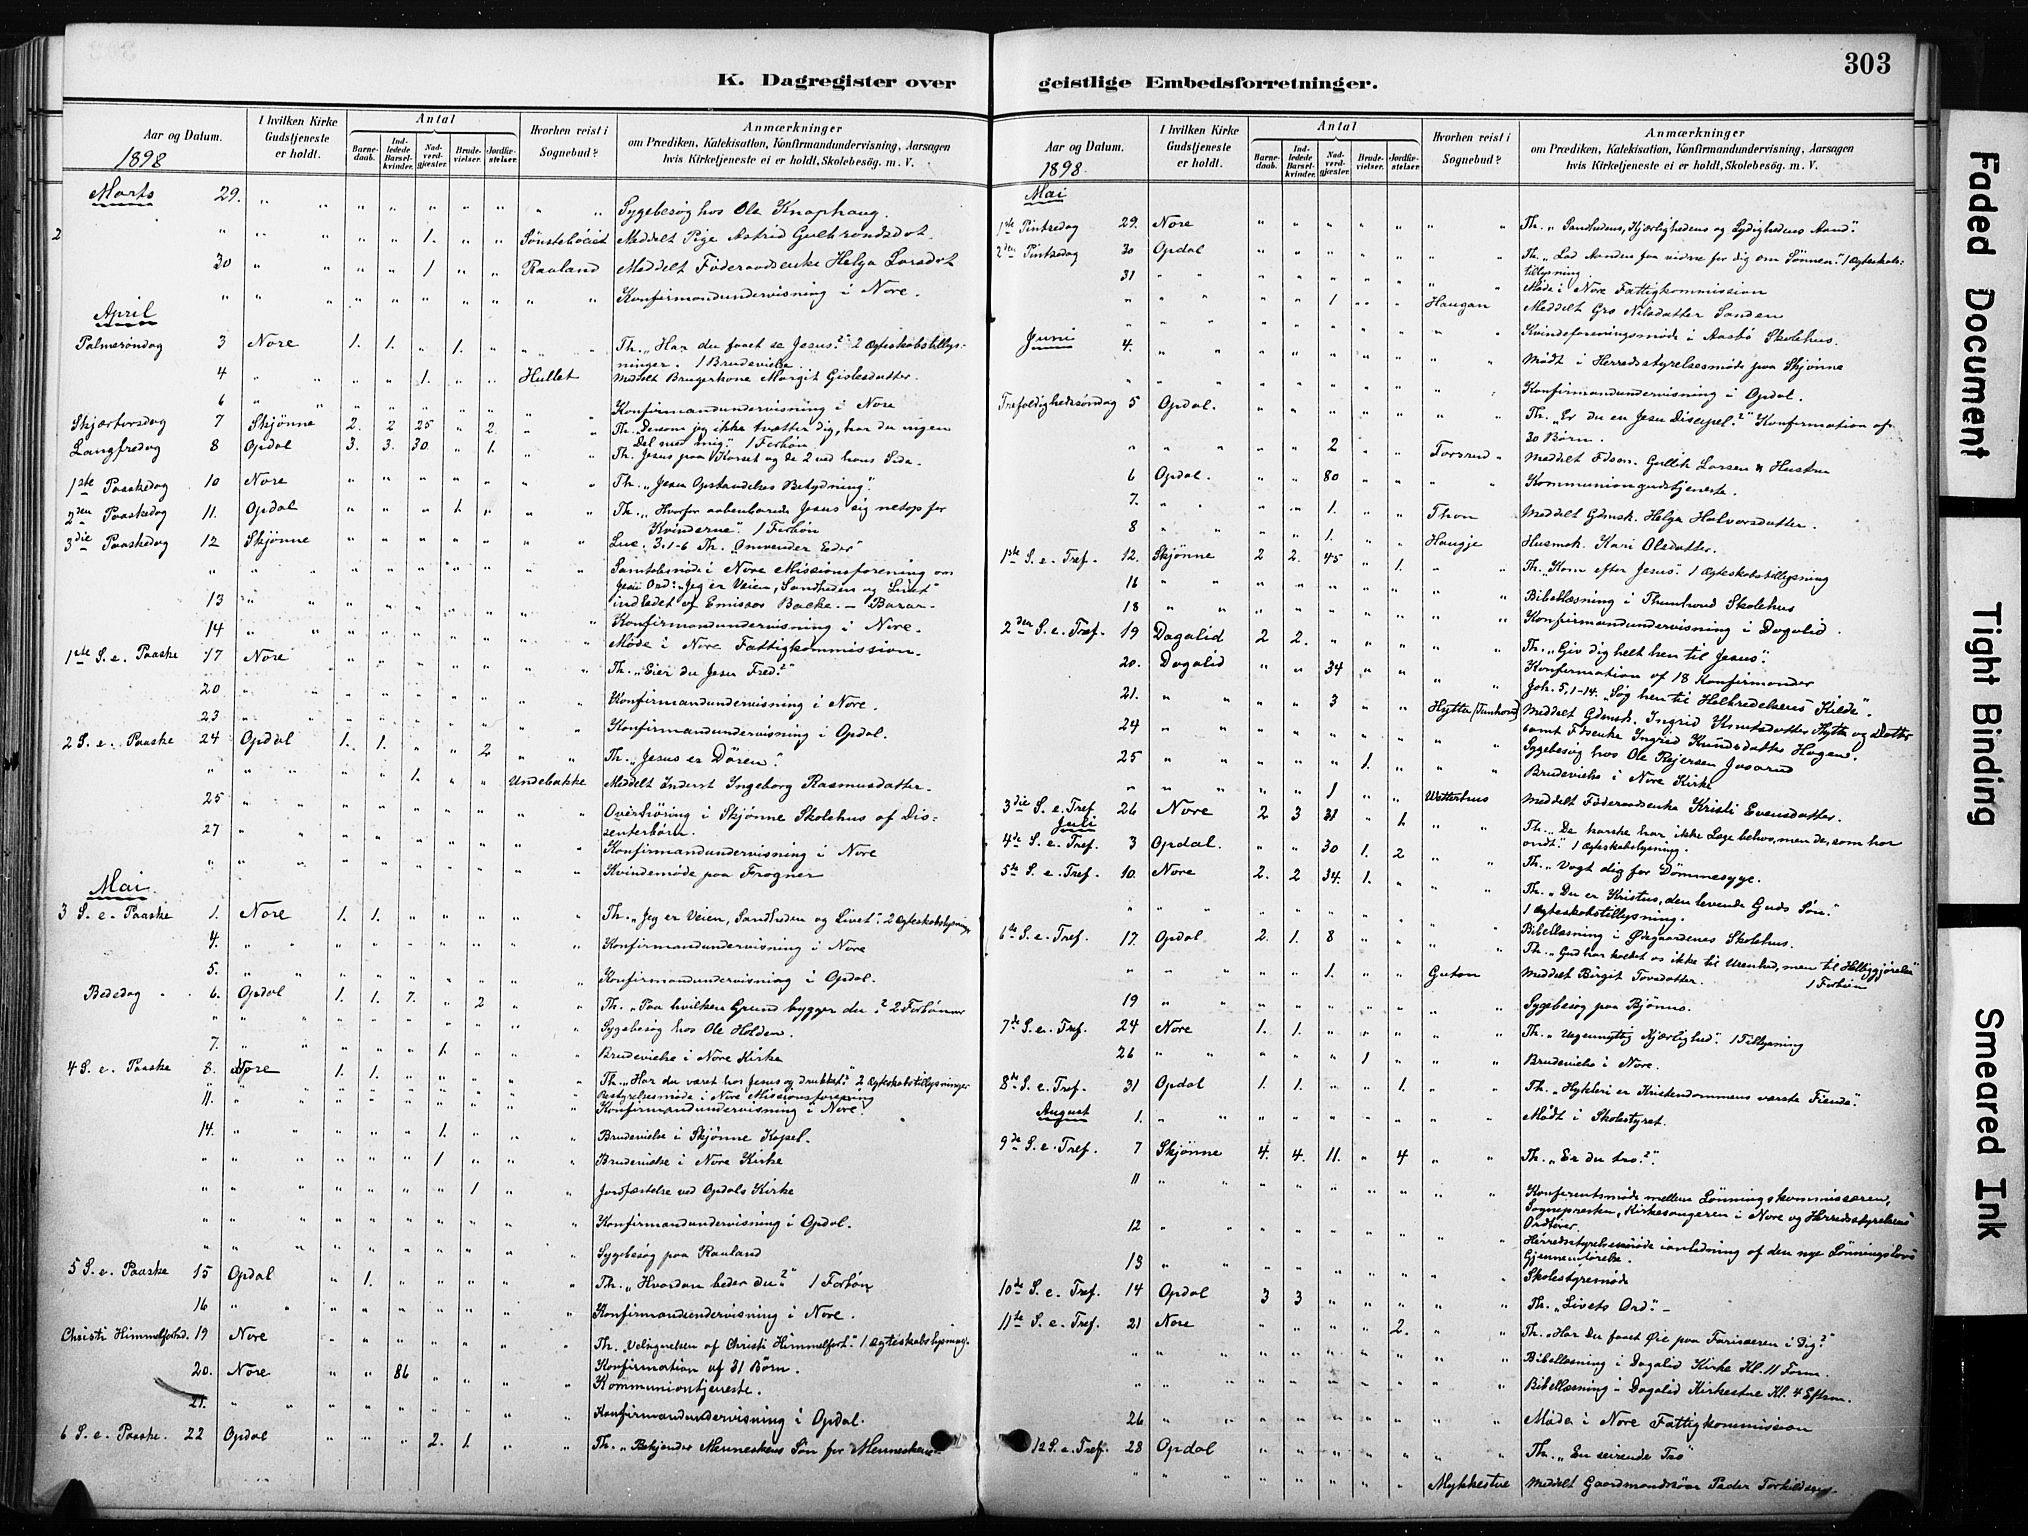 303
K. Dagregister over
Aar og Datum.
1898
I hvilken Kirke Gudstjeneste er holdt.
Antal
Barnedaab. Indledede Barselkvinder. Nadverdgjester. Brudevielser. Jordfæstelser.
Hvorhen reist i Sognebud?
Anmærkninger
om Prædiken, Katekisation, Konfirmandundervisning, Aarsagen
hvis Kirketjeneste ei er holdt, Skolebesög. m. V.
Marts 29. " " " " " " " " " Sygebesög hos Ole Knaphaug.
2 " " " " " 1. " " Sönsteböiet Meddelt Pige Astrid Gulbrandsdat.
30 " " " " 1 " " Raaland Meddelt Föderaadsenke Helga Larsdat
" " " " " " " " " " Konfirmandundervisning i Nore.
April
Palmesöndag 3 Nore 1. 1. " 1. " " " Th. "Har du faaet se Jesus?" 2 Ægteskabstillys-
ninger. 1 Brudevielse.
4 " " " " 1. " " Hullet Meddelt Brugerkone Margit Gislesdatter.
6 " " " " " " " " " Konfirmandundervisning i Nore
Skjærtorsdag 7 Skjönne 2. 2 25 " 2. " " Th. Dersom jeg ikke tvætter dig, har du ingen
Del med mig." 1 Forbön
Langfredag 8 Opdal 3. 3. 30. " 1. " " Th. Jesus paa Korset og de 2 ved hans Side.
1ste Paaskedag 10 Nore " " " " " " " Th. "Jesu Opstandelses Betydning".
2den Paaskedag 11. Opdal " " " 1. " " " Th. "Hvorfor aabenbarede Jesus sig netop for
Kvinderne". 1 Forbön
3die Paaskedag 12 Skjönne " " " " " " " Luc. 3.1-6 Th. Omvender Eder"
" " " " " " " " " " Samtalemöde i Nore Missionsforening om
Jesu Ord: "Jeg er Veien, Sandheden og Livet"
13 " " " " " " " " " indledet af Emissær Bakke.
14 " " " " " " " " " Konfirmandundervisning i Nore.
Möde i Nore Fattigkommission.
1ste S. e. Paaske 17 Nore " " " " " " " Th. "Eier du Jesu Fred?"
20 " " " " " " " " " Konfirmandundervisning i Nore.
23 " " " " " " " " " Konfirmandundervisning i Opdal.
2 S. e. Paaske 24 Opdal 1. 1. " " 2 " " Th. "Jesus er Dören".
" " " " " 1. " " Undebakke Meddelt Inderst Ingeborg Rasmusdatter.
25 " " " " " " " " " Overhöring i Skjönne Skolehus af Dis-
senterbörn.
27 " " " " " " " " " Konfirmandundervisning i Nore
" " " " " " " " " " Kvindemöde paa Frogner
Mai
3 S. e. Paaske 1. Nore 1. 1. " " " " " Th. "Jeg er Veien, Sandheden og Livet". 2 Ægteskabslysning
4. " " " " " " " " Konfirmandundervisning i Nore
5. " " " " " " " " Konfirmandundervisning i Opdal.
Bededag 6. Opdal 1. 1. 7. " 2 " " Th. "Paa hvilken Grund bygger du?" 2 Forbönner
" " " " " " " " " Sygebesög hos Ole Holden.
7. " " " " " 1. " " " Brudevielse i Nore Kirke
4 S. e. Paaske 8. Nore 1. 1. " " " " " Th. "Har du været hos Jesus og drukket?" 2 Ægteskabstillysninger
" " " " " " " " " Bestyrelsesmöde i Nore Missionsforening
11. " " " " " " " " Konfirmandundervisning i Nore
14. " " " " " 1. " " " Brudevielse i Skjönne Kapel.
" " " " " 1 " " " Brudevielse i Nore Kirke
" " " " " " 1 " " Jordfæstelse ved Opdals Kirke
" " " " " " " " " Konfirmandundervisning i Opdal.
" " " " " " " " " Sygebesög paa Raaland
5 S. e. Paaske 15 Opdal " 1. " " " " " Th. "Hvordan beder du?" 1 Forbön
16 " " " " " " " " " Konfirmandundervisning i Nore.
Christi Himmelfartsd. 19 Nore " " " " " " " Th. "Velsignelsen af Christi Himmelfart." 1 Ægteskabslysning.
Konfirmation af 31 Börn.
20. Nore " " 86 " " " " Kommuniontjeneste.
21. " " " " " " " " " Konfirmandundervisning i Opdal.
6 S. e. Paaske. 22 Opdal " " " 2. 1. " " Th. "Bekjender Menneskens Sön for Menneskene"
geistlige Embedsforretninger.
Aar og Datum.
1898.
I hvilken Kirke Gudstjeneste er holdt.
Antal
Barnedaab. Indledede Barselkvinder. Nadverdgjester. Brudevielser. Jordfæstelser.
Hvorhen reist i Sognebud?
Anmærkninger
om Prædiken, Katekisation, Konfirmandundervisning, Aarsagen
hvis Kirketjeneste ei er holdt, Skolebesög. m. V.
Mai
1ste Pintsedag 29. Nore " " " " " " " Th. "Sandhedens, Kjærlighedens og Lydighedens Aand".
2den Pintsedag 30 Opdal " " " " " " " Th. "Lad Aanden faa vidne for dig om Sönnen". 1 Ægteskabs-
tillysning
31 " " " " " " " " " Möde i Nore Fattigkommission
" " " " " 1 " " Haugan Meddelt Gro Nilsdatter Sanden
" " " " " " " " " " Kvindeforeningsmöde i Aasbö Skolehus.
Juni
4. " " " " " " " " " Mödt i Herredsstyrelsesmöde paa Skjönne
" " " " " " " " " " Konfirmandundervisning i Opdal.
Trefoldighedssöndag 5 Opdal. " " " " " " " Th. "Er du en Jesu Discipel?" Konfirmation af
30 Börn.
" " " " " 2 " " Torsrud " Meddelt Fdsm. Gullik Larsen & Hustru
6 Opdal. " " 80 " " " " Kommuniongudstjeneste.
7. " " " " 1. " " Thon Meddelt Gdmsk. Helga Halvorsdatter.
8 " " " " 1. " " Haugje Husmsk. Kari Olsdatter.
1ste S. e. Tref. 12. Skjönne 2 2. 45 " 1. " " Th. "Kom efter Jesus". 1 Ægteskabstillysning
16 " " " " " " " " " Bibellæsning i Thunhovd Skolehus
18 " " " " " " " " " Konfirmandundervisning i Dagalid.
2den S. e. Tref. 19 Dagalid 2 2. " " " " " Th. "Giv dig helt hen til Jesus".
Konfirmation af 18 Konfirmander
20. Dagalid " " 34 " " " " Joh. 5, 1-14. "Søg hen til Helbredelsens Kilde".
21. " " " " 3 " " Hytta (Tunhovd) Meddelt Gdmsk. Ingrid Knutsdatter Hytta og Datter
samt Fdsenke Ingrid Knudsdatter Hagen.
24 " " " " " " " " " Sygebesög hos Ole Reiersen Josarud
25 " " " " " 1. " " " Brudevielse i Nore Kirke
" " " " " 1 " " Wetterhus Meddelt Föderaadsenke Kristi Evensdatter.
3die S. e. Tref 26 Nore 2 3 31 " 1. " " Th. "De karske har ikke Læge behov, men de, som har
ondt". 1 Ægteskabslysning.
Juli
4de S. e. Tref. 3 Opdal. " " 30 1. 2 " " Th. "Vogt dig for Dömmesyge.
5te S. e. Tref. 10. Nore 2. 2 34. 1. " " " Th. "Du er Kristus, den levende Guds Sön."
1 Ægteskabstillysning.
" " " " " " " " " " Bibellæsning i Ödegaardenes Skolehus.
6te S. e. Tref. 17. Opdal 2. 1. 8 " " " " Th. "Gud har kaldet os ikke til Urenhed, men til Helliggjörelse"
1 Forbön
" " " " " 1. " " Guton Meddelt Birgit Torsdatter.
19 " " " " " " " " " Sygebesög paa Bjönno.
7de S. e. Tref. 24 Nore 1. 1. " " " " " Th. "Uegennyttig Kjærlighed". 1 Tillysning
26 " " " " " 1 " " " Brudevielse i Nore.
8de S. e. Tref. 31 Opdal 1. 1. " " 1. " " Th. "Hykleri er Kristendommens værste Fiende".
August 1. " " " " " " " " " Mödt i Skolestyret.
9de S. e. Tref. 7 Skjönne 4. 4. 11. " 4 " " Th. "Er du tro?".
11 " " " " " " " " " Konferentsmöde mellem Lönningskommissæren,
Sognepresten, Kirkesangeren i Nore og Herredsstyrelsens
Ordförer.
12 " " " " " " " " " Herredsstyrelsesmöde i anledning af den nye Lönningslovs
Gjennemförelse.
13 " " " " " " " " " Skolestyremöde
10de S. e. Tref. 14 Opdal 3 3 " " " " " Th. "Livets Ord". -
11te S. e. Tref. 21 Nore " " " " 2. " " Th. "Har du faaet Öie paa Farisæeren i Dig?"
" " " " " " " " " " Bibellæsning i Dagalid Kirke Kl. 11 Form.
" " " " " " " " " " Bibellæsning i Dagalid Kirkestue Kl. 4 Eftrm.
26 " " " " " " " " " Möde i Nore Fattigkommission
12 S. e. Tref. 28 Opdal " " " " " " " Th. "En seirende Tro"
" " " " " " " " Mykkestue Meddelt Gaardmandskaar Peder Torkildsen.
Faded Document
Tight Binding
Smeared Ink